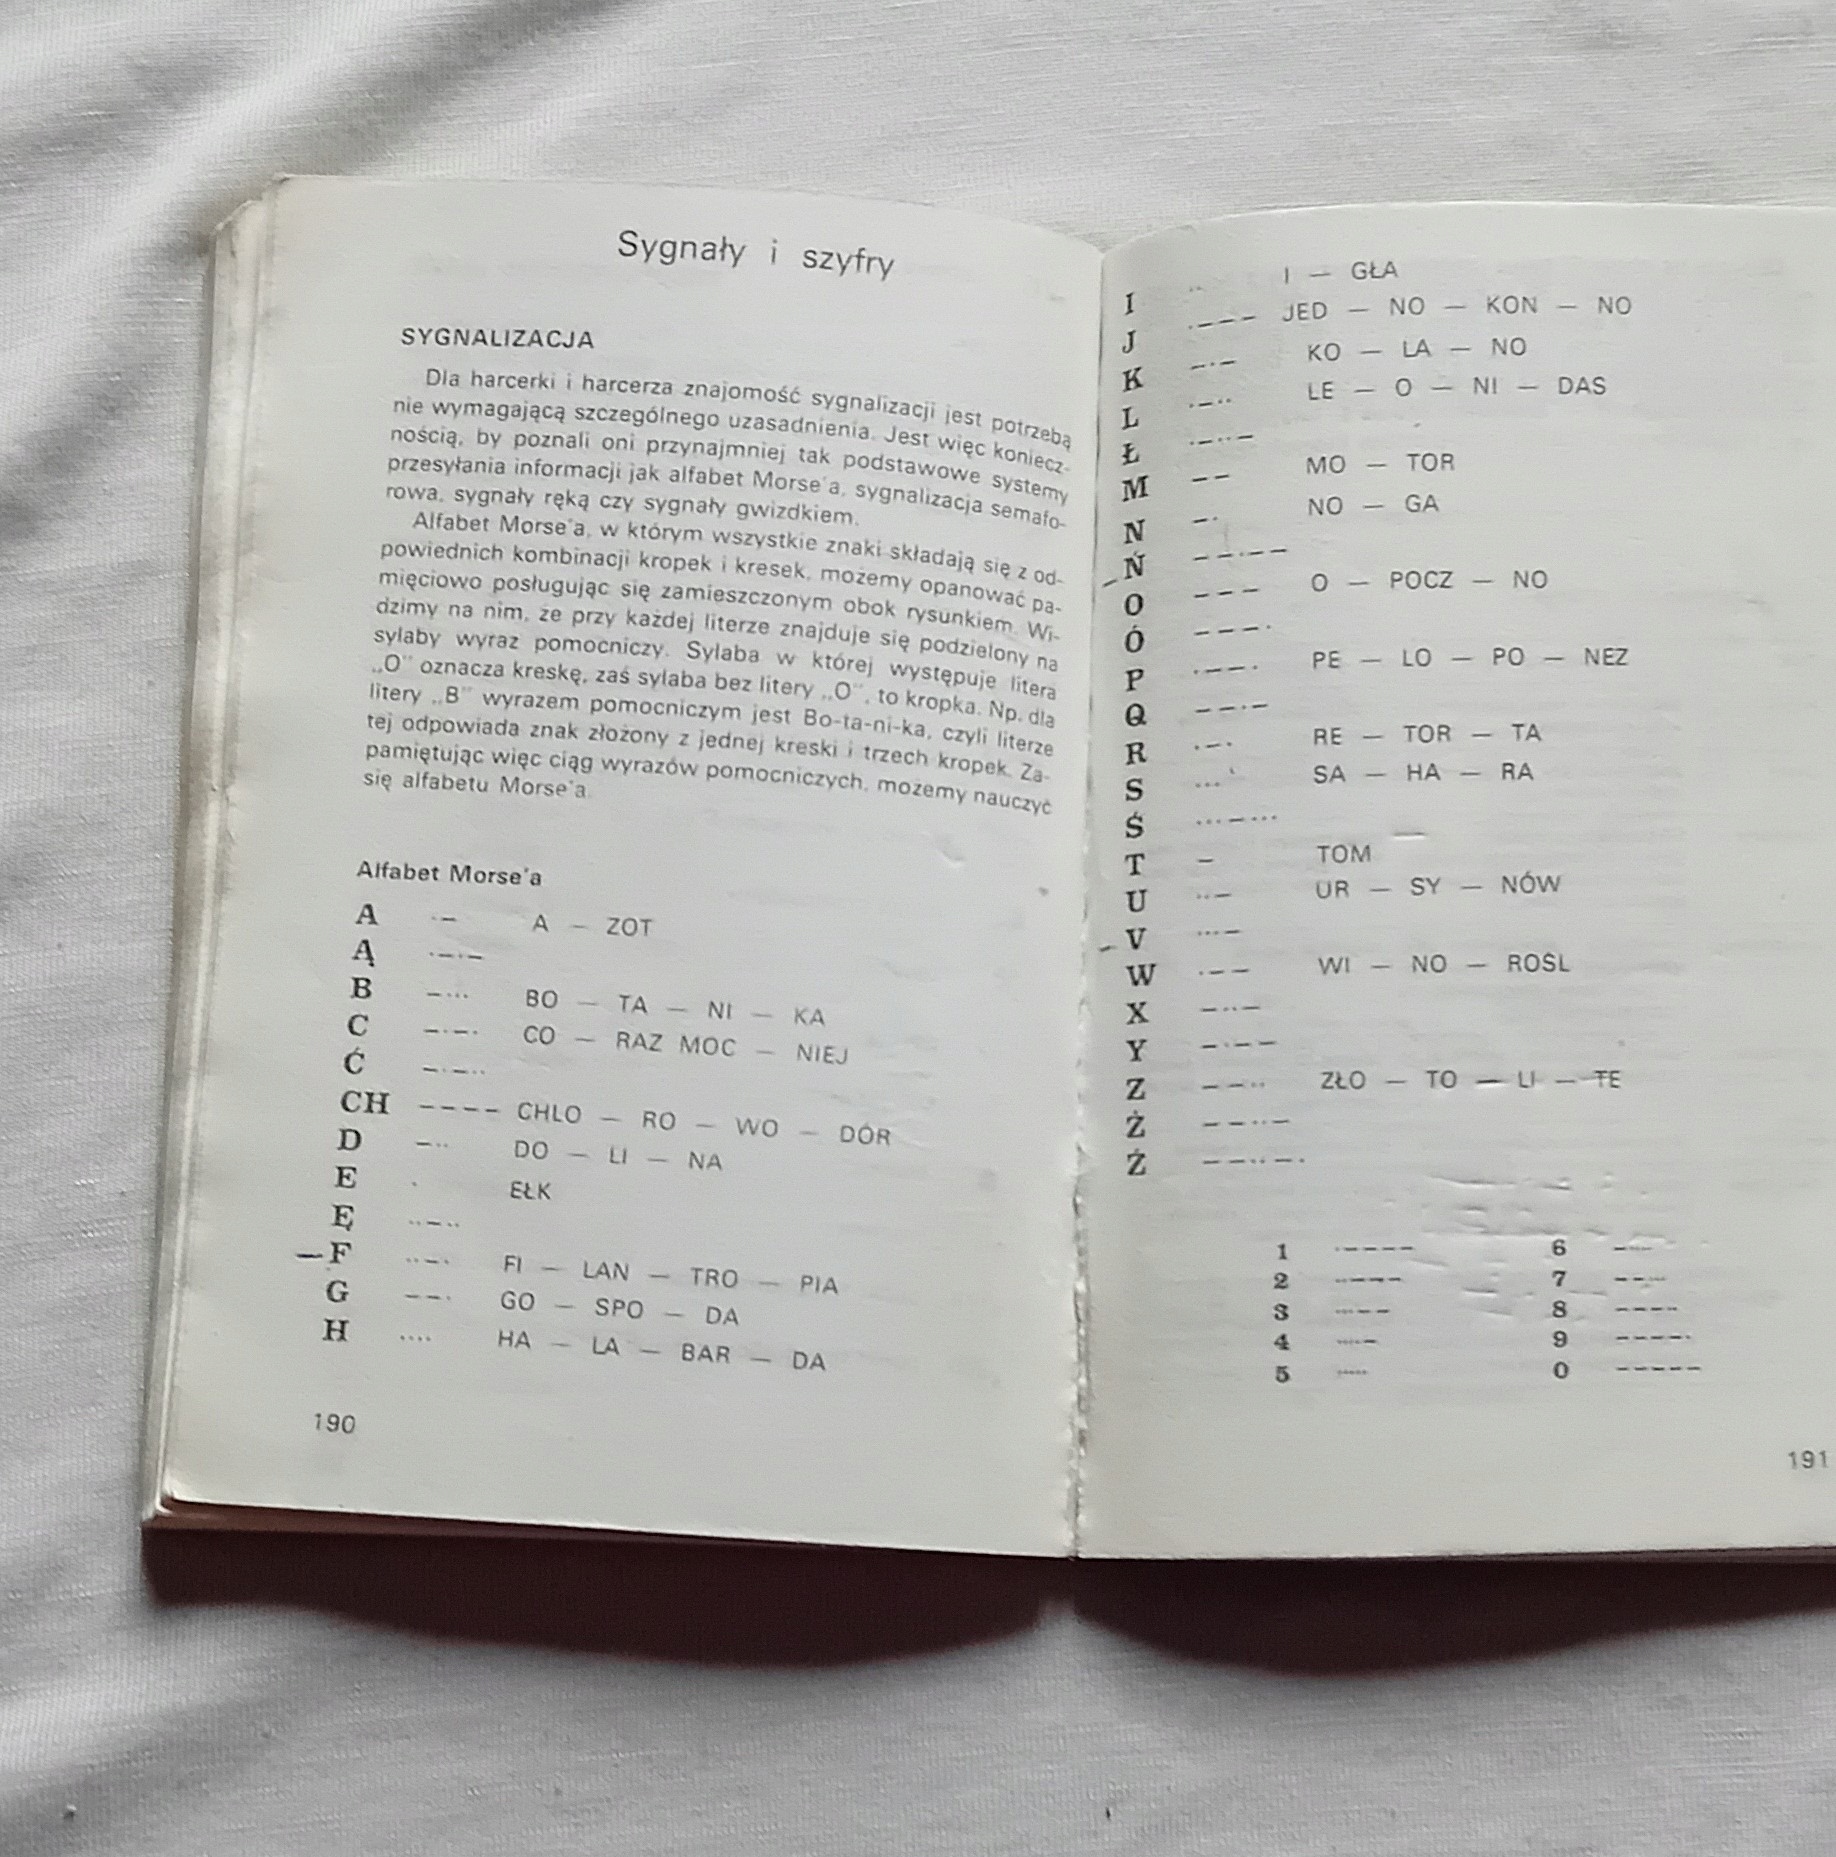 Sygnały i szyfry
SYGNALIZACJA
Dla harcerki i harcerza znajomość sygnalizacji jest potrzebą
nie wymagającą szczególnego uzasadnienia. Jest więc koniecz-
nością, by poznali oni przynajmniej tak podstawowe systemy
przesyłania informacji jak alfabet Morse'a, sygnalizacja semafo-
rowa, sygnały ręką czy sygnały gwizdkiem.
Alfabet Morse'a, w którym wszystkie znaki składają się z od-
powiednich kombinacji kropek i kresek, możemy opanować pa-
mięciowo posługując się zamieszczonym obok rysunkiem. Wi-
dzimy na nim, że przy każdej literze znajduje się podzielony na
sylaby wyraz pomocniczy. Sylaba w której występuje litera
„O" oznacza kreskę, zaś sylaba bez litery „O", to kropka. Np. dla
litery „B" wyrazem pomocniczym jest Bo-ta-ni-ka, czyli literze
tej odpowiada znak złożony z jednej kreski i trzech kropek. Za-
pamiętując więc ciąg wyrazów pomocniczych, możemy nauczyć
się alfabetu Morse'a.
Alfabet Morse'a
A .– A – ZOT
Ą .–.–
B –... BO – TA – NI – KA
C –.–. CO – RAZ MOC – NIEJ
Ć –.–..
CH –––– CHLO – RO – WO – DÓR
D –.. DO – LI – NA
E . EŁK
Ę ..–..
F ..–. FI – LAN – TRO – PIA
G ––. GO – SPO – DA
H .... HA – LA – BAR – DA
190
I .. I – GŁA
J .––– JED – NO – KON – NO
K –.– KO – LA – NO
L .–.. LE – O – NI – DAS
Ł .–..–
M –– MO – TOR
N –. NO – GA
Ń ––.––
O ––– O – POCZ – NO
Ó –––.
P .––. PE – LO – PO – NEZ
Q ––.–
R .–. RE – TOR – TA
S ... SA – HA – RA
Ś ...–...
T – TOM
U ..– UR – SY – NÓW
V ...–
W .–– WI – NO – ROŚL
X –..–
Y –.––
Z ––.. ZŁO – TO – LI – TE
Ż ––..–
Ź ––..–.
1 .–––– 6 –....
2 ..––– 7 ––...
3 ...–– 8 –––..
4 ....– 9 ––––.
5 ..... 0 –––––
191